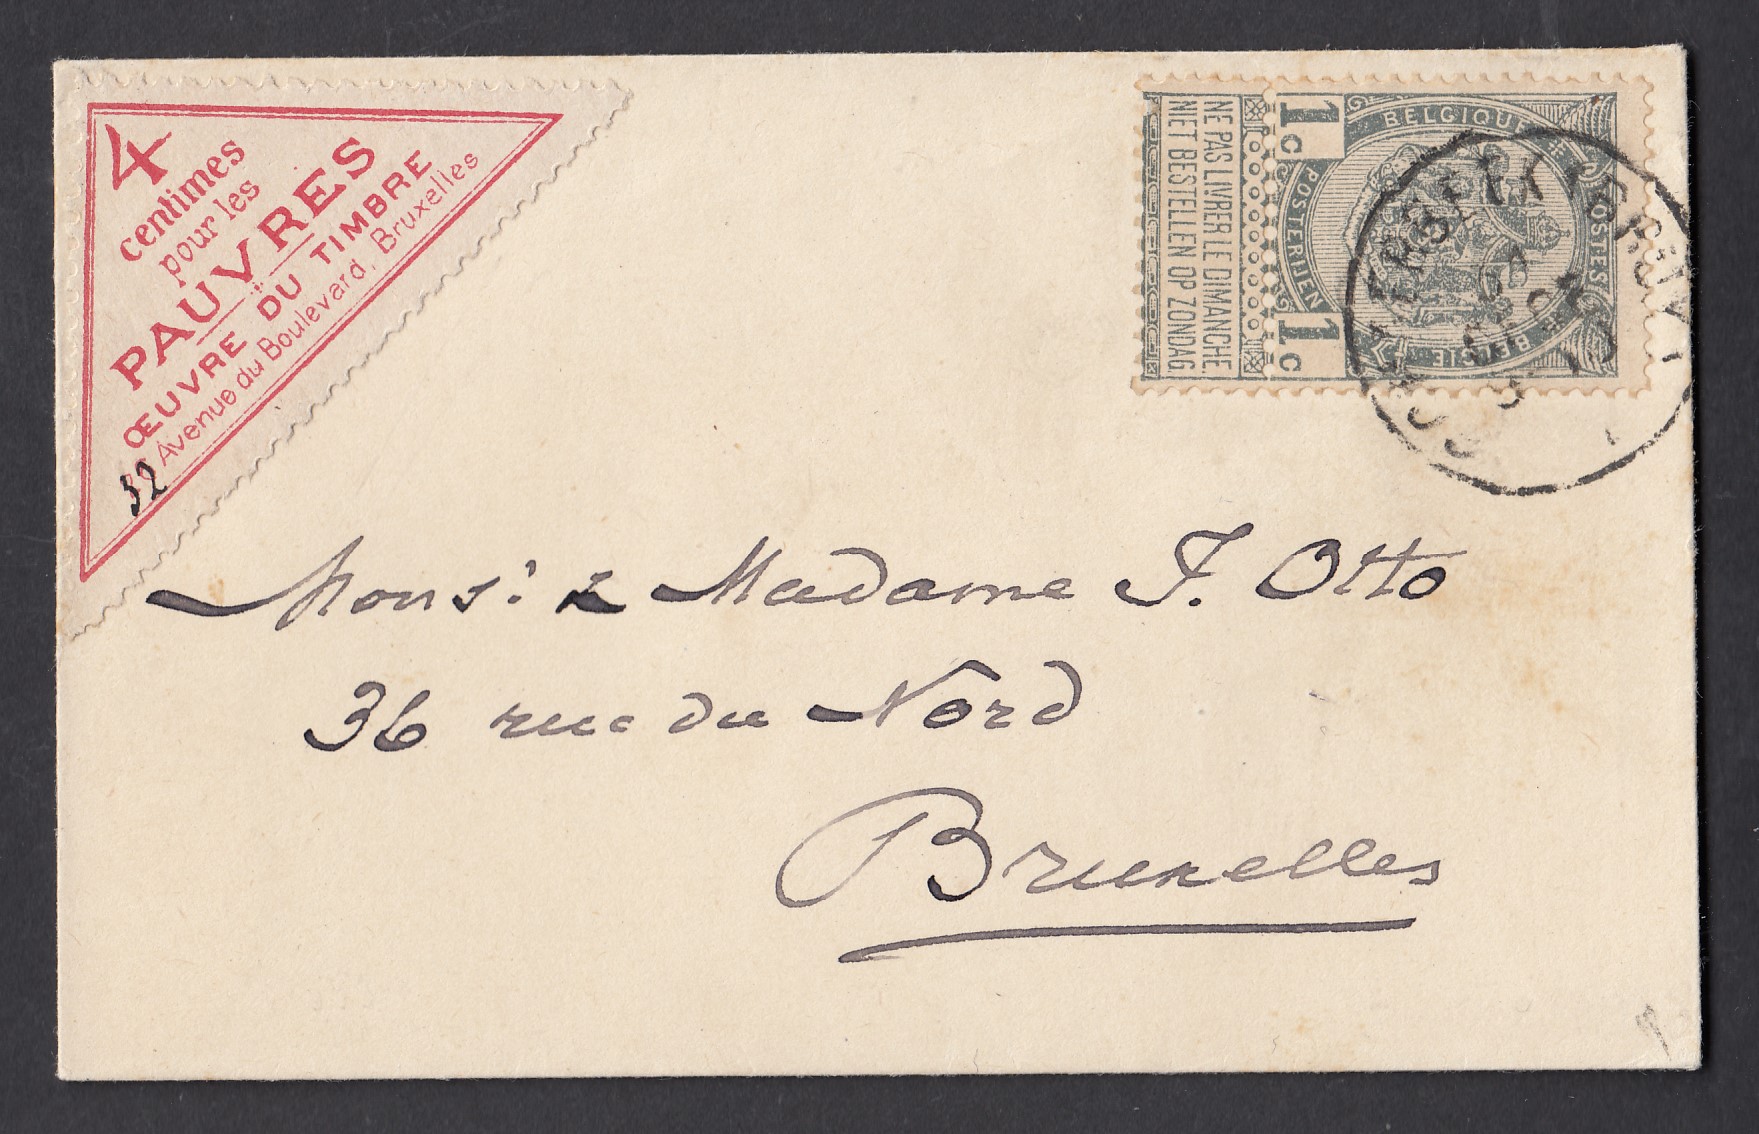 4
centimes
pour les
PAUVRES
ŒUVRE DU TIMBRE
32 Avenue du Boulevard, Bruxelles
NE PAS LIVRER LE DIMANCHE.
NIET BESTELLEN OP ZONDAG.
1c
1c
BELGIQUE
POSTES
POSTERIJEN
BELGIË
Monsr & Madame J. Otto
36 rue du Nord
Bruxelles